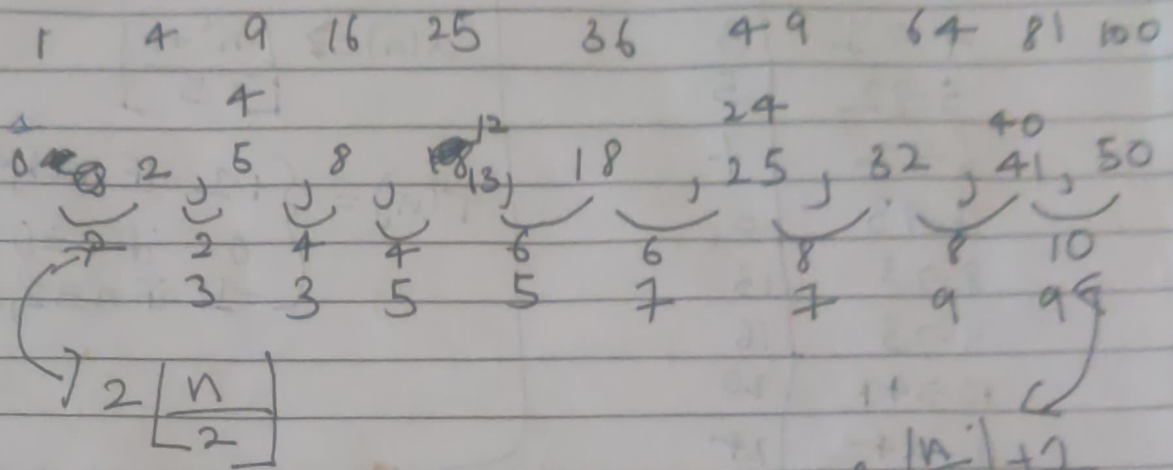 1 4 9 16 25 36 49 64 81 100
4 24 40
0 2 , 5 , 8 , 12 13, 18 , 25 , 32 , 41 , 50
2 2 4 4 6 6 8 8 10
3 3 5 5 7 7 9 9
2 ⌊n/2⌋